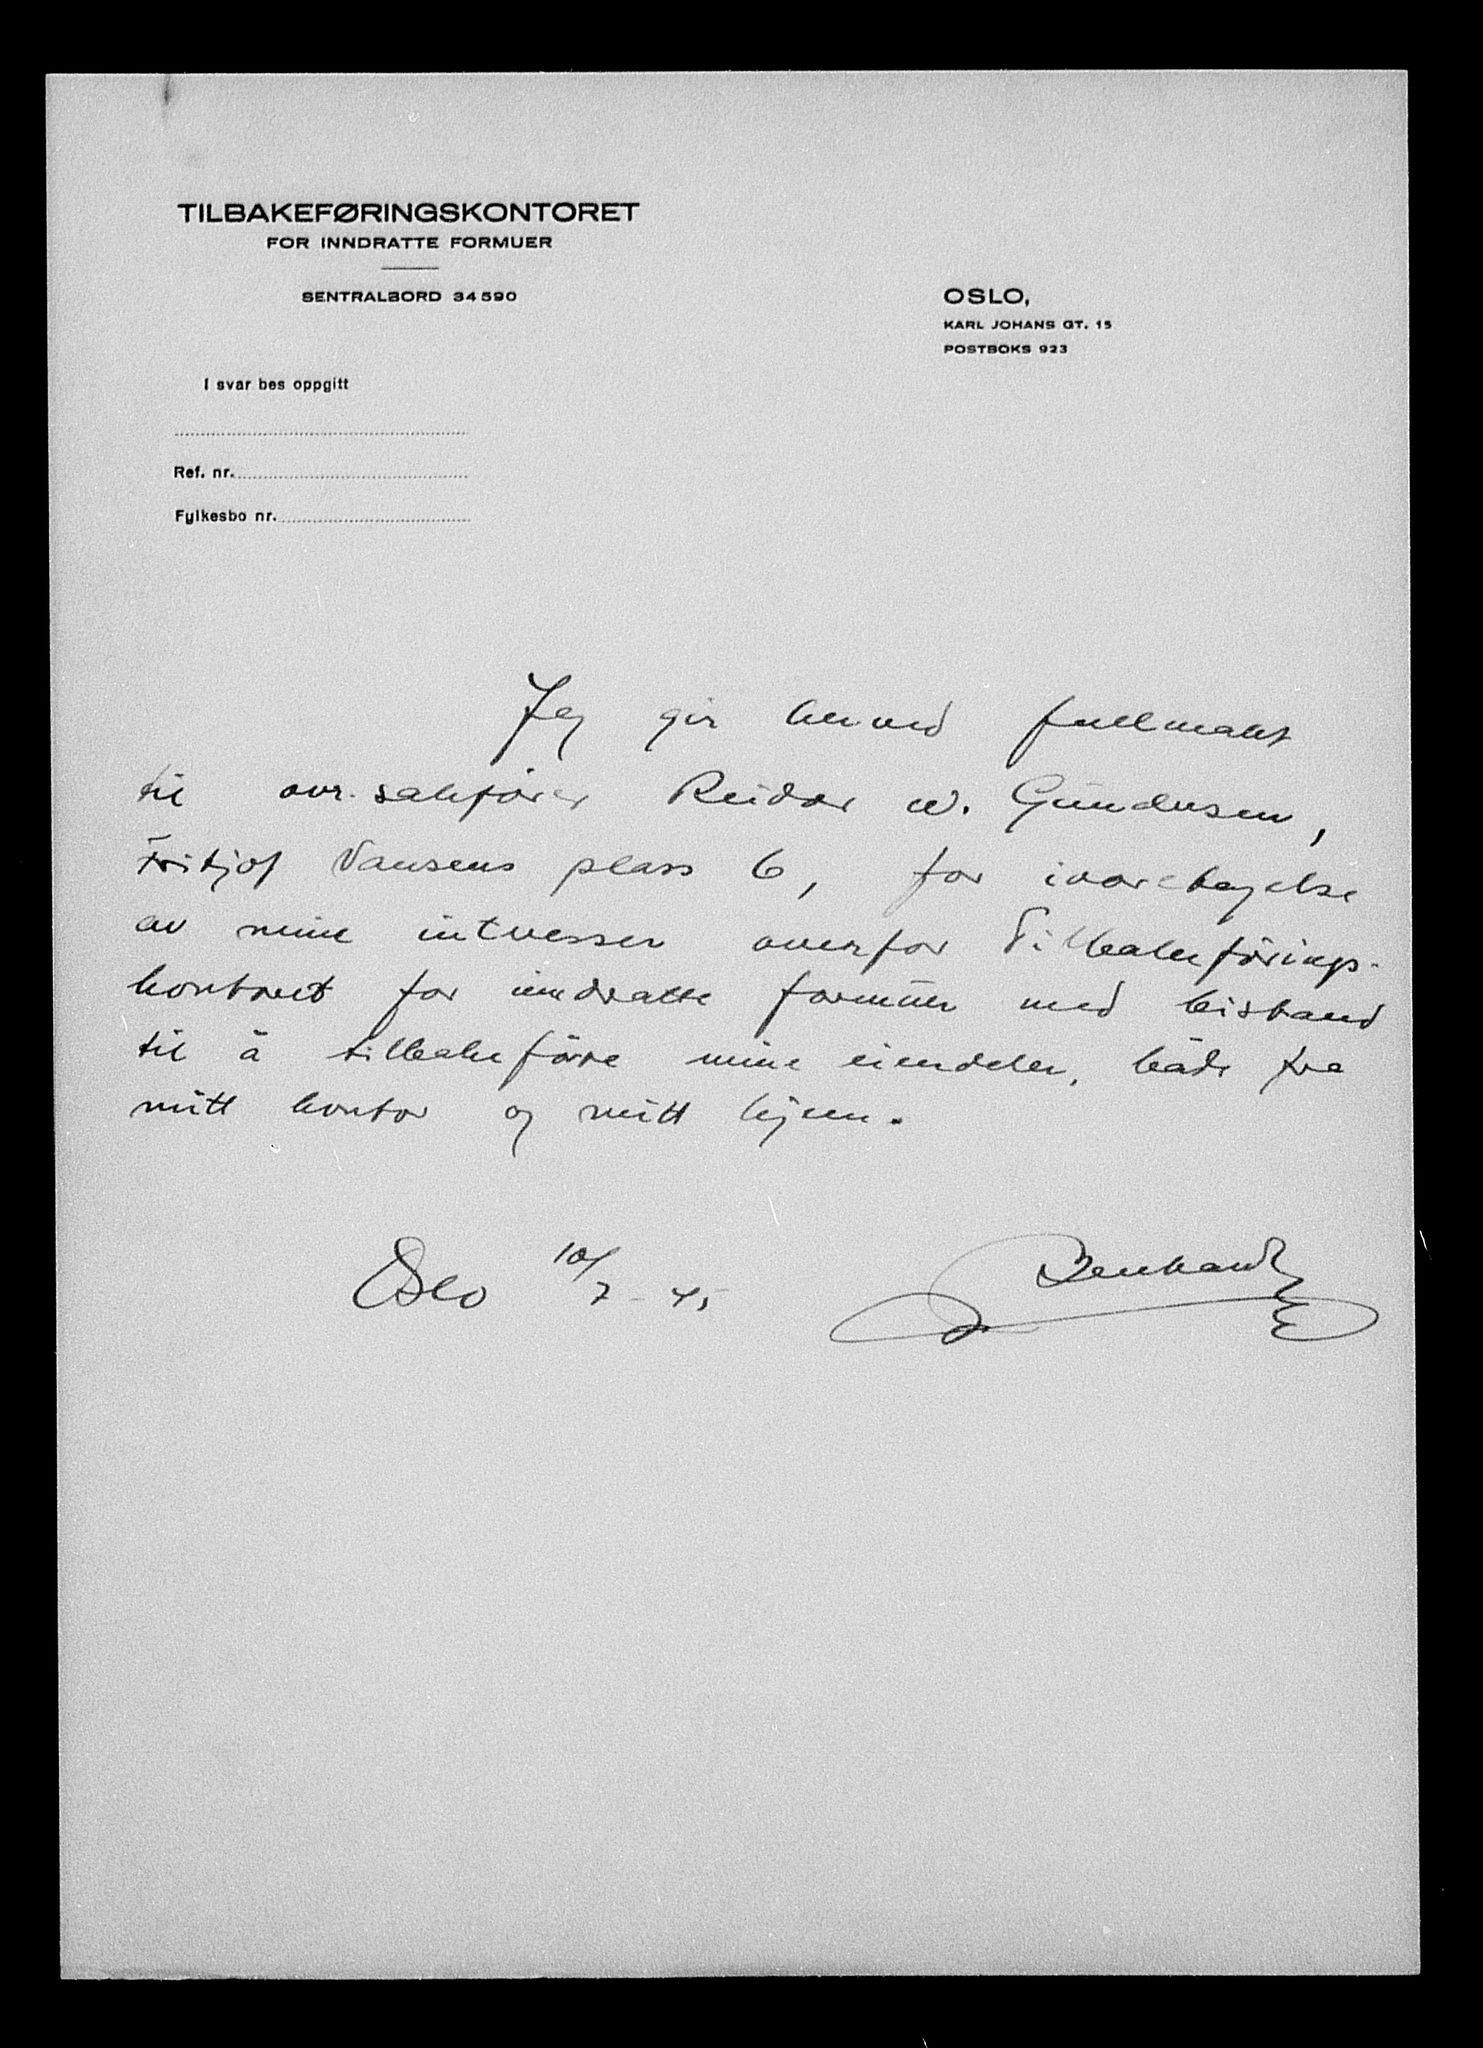 TILBAKEFØRINGSKONTORET
FOR INNDRATTE FORMUER
SENTRALBORD 34590
OSLO,
KARL JOHANS GT. 15
POSTBOKS 923
I svar bes oppgitt
Ref. nr.
Fylkesbo nr.
Jeg gir herved fullmakt
til ovr.sakfører Reidar W. Gundersen,
Fritjof Nansens plass 6, for ivaretagelse
av mine interesser overfor Tilbakeførings-
kontoret for inndratte formuer med bistand
til å tilbakeføre mine eiendeler, både fra
mitt kontor og mitt hjem.
Oslo 10/7-45